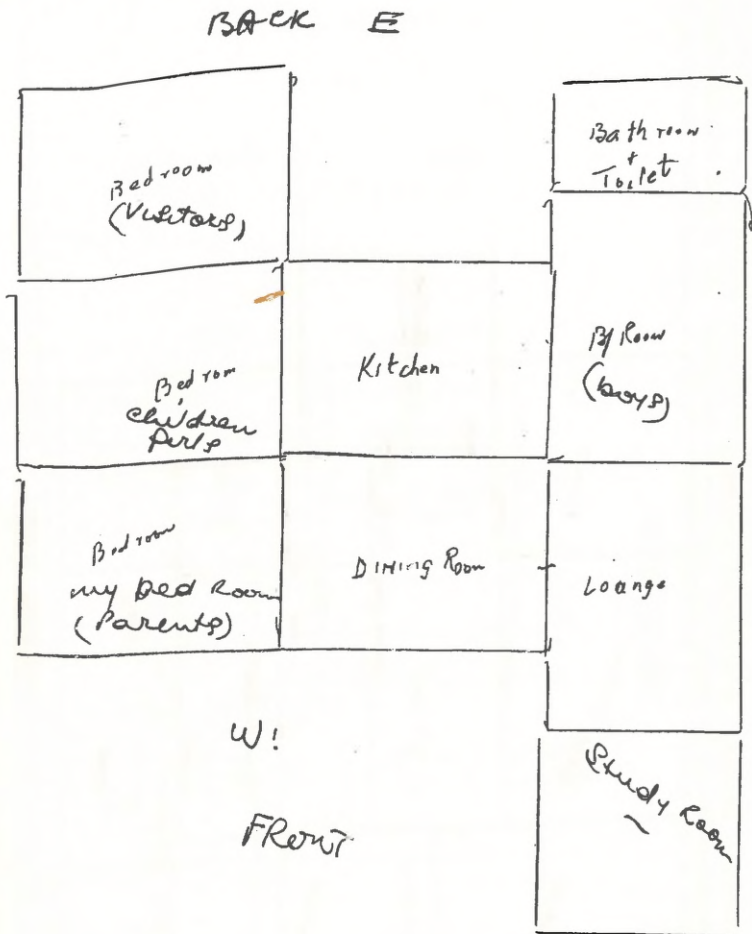 BACK E
Bedroom
(Visitors)
Bath room
+
Toilet
Bedrom
children
Girls
Kitchen
B/Room
(boys)
Bedroom
my Bed Room
(Parents)
DINING Room
Lounge
W!
FRONT
Study Room